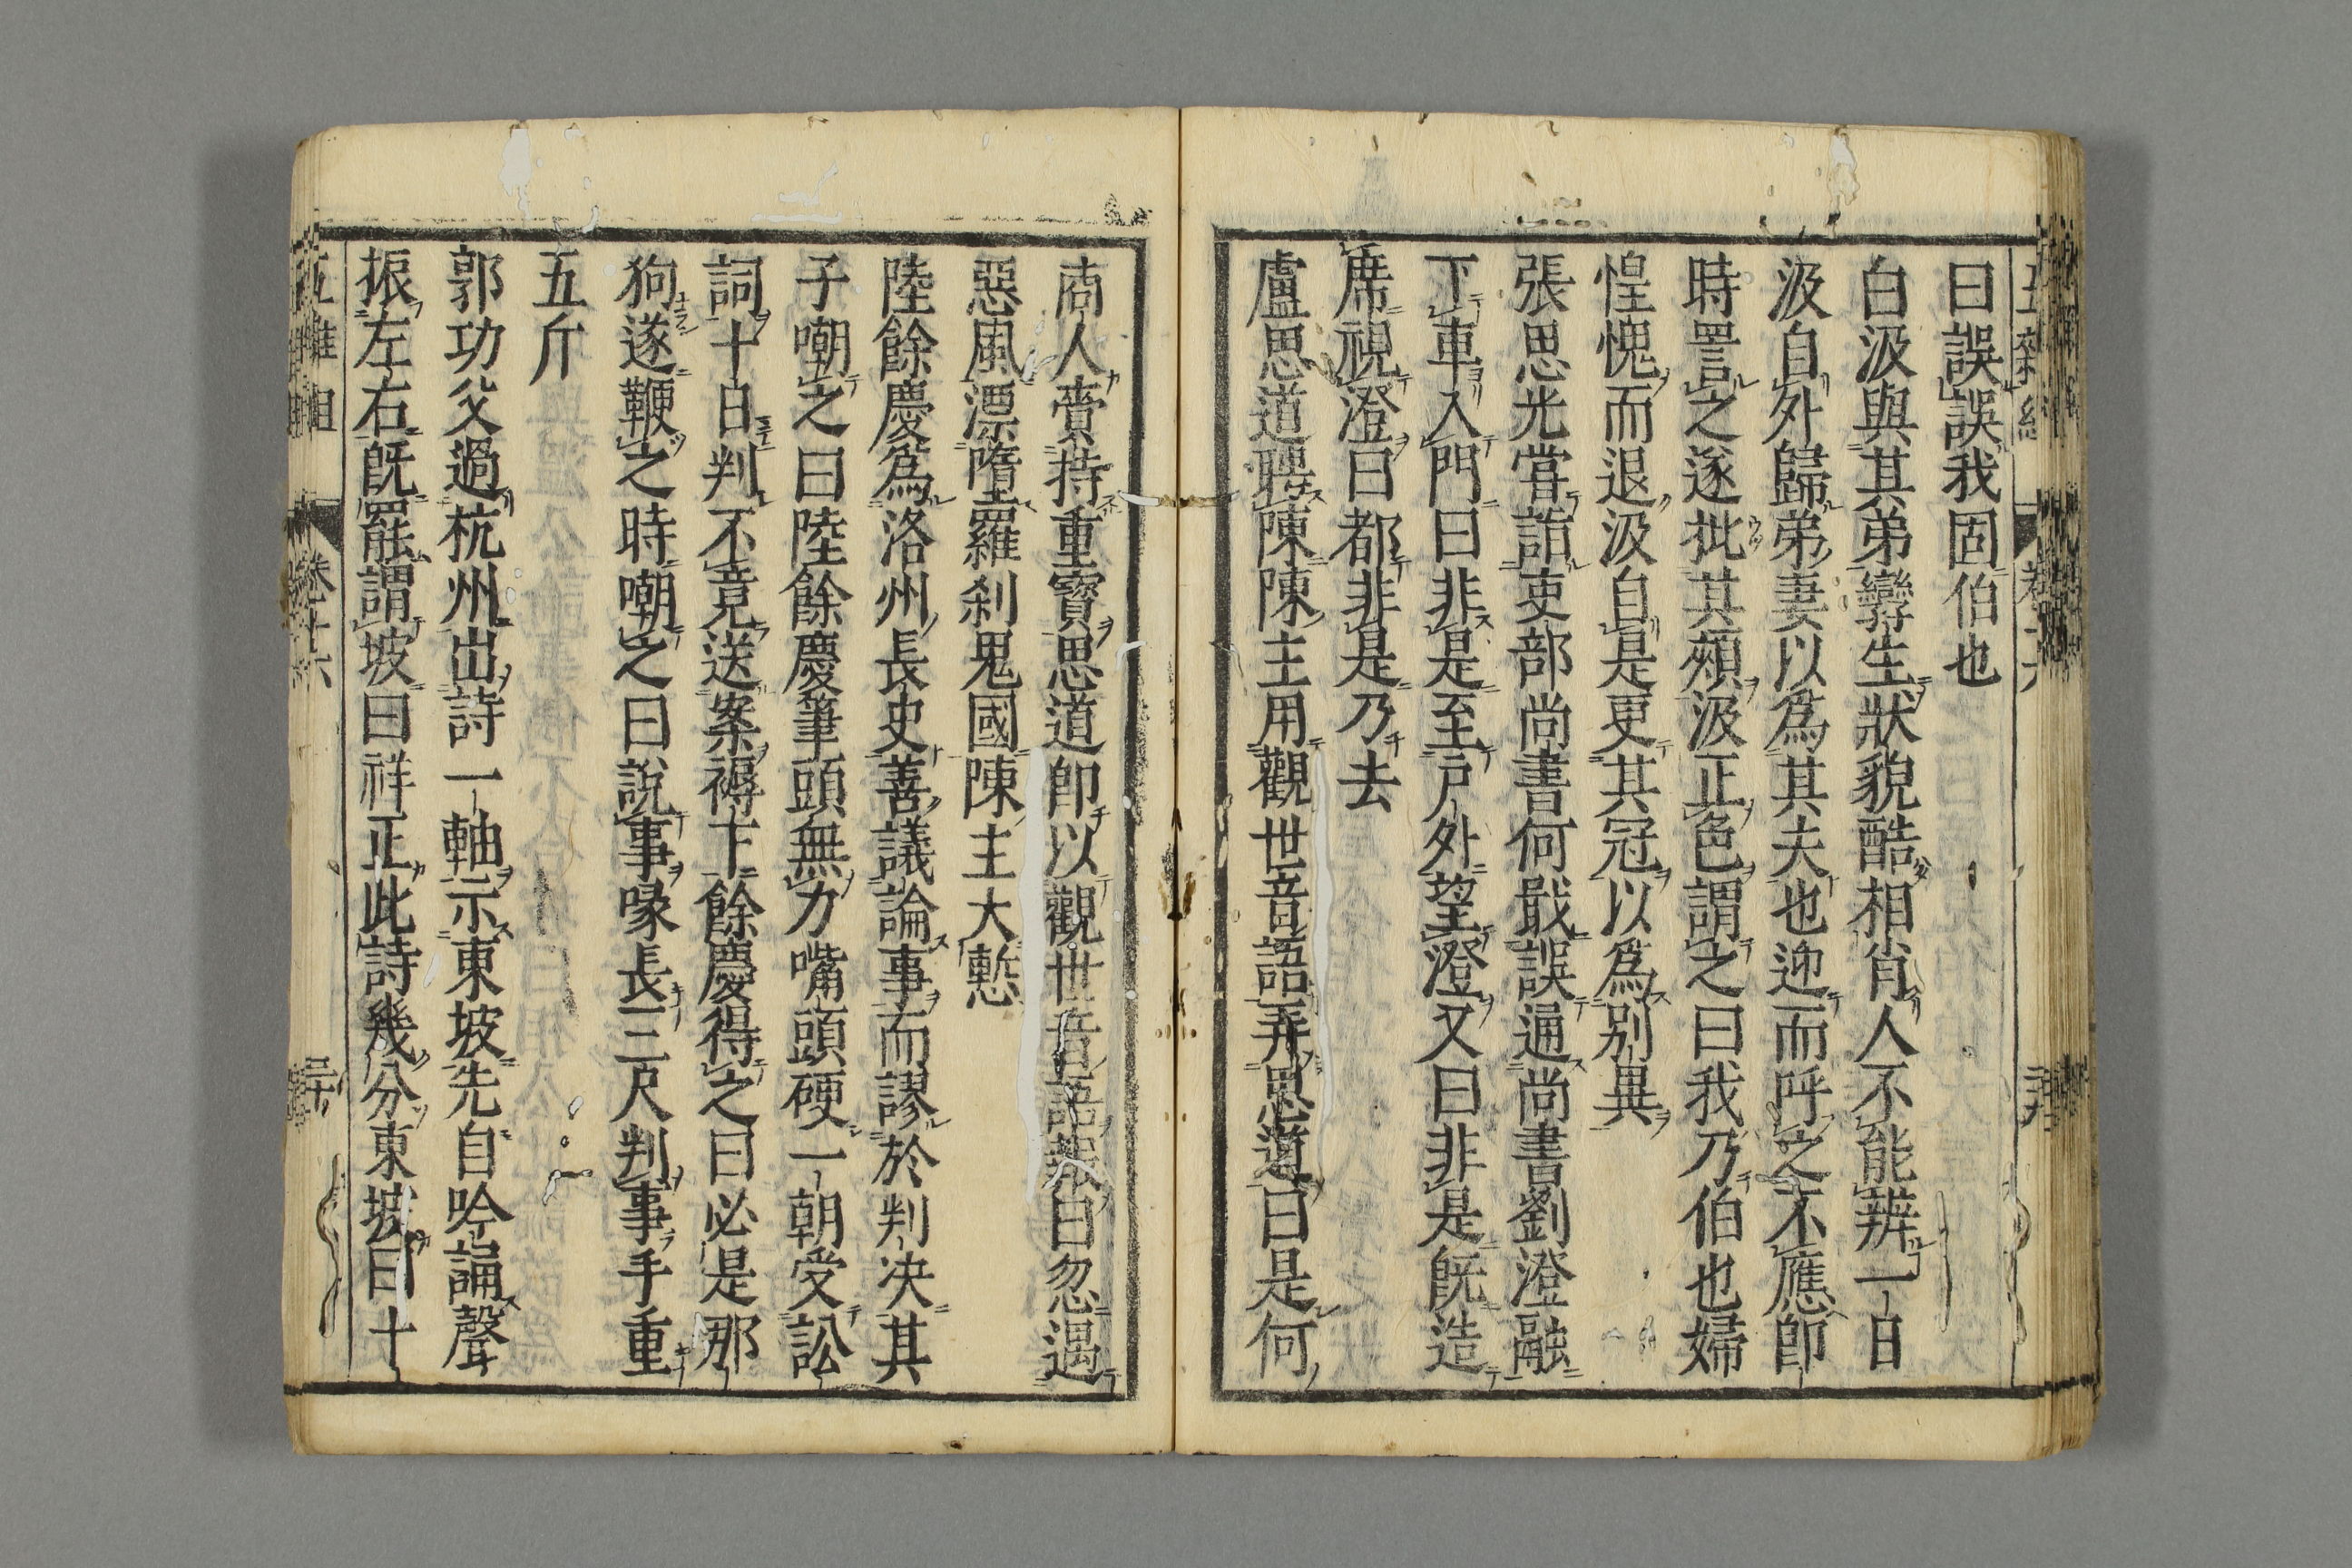 曰誤誤我固伯也
白汲與其弟孿生狀貌酷相肖人不能辨一日
汲自外歸弟妻以爲其夫也迎而呼之不應卽
時詈之遂批其頰汲正色謂之曰我乃伯也婦
惶愧而退汲自是更其冠以爲別異
張思光嘗詣吏部尚書何戢誤通尚書劉澄融
下車入門曰非是至戸外望澄又曰非是旣造
席視澄曰都非是乃去
盧思道聘陳陳主用觀世音語弄思道曰是何
商人賷持重寶思道卽以觀世音語報曰忽遇
惡風漂墮羅刹鬼國陳主大慙
陸餘慶爲洛州長史善議論事而謬於判决其
子嘲之曰陸餘慶筆頭無力嘴頭硬一朝受訟
詞十日判不竟送案褥下餘慶得之曰必是那
狗遂鞭之時嘲之曰說事喙長三尺判事手重
五斤
郭功父過杭州出詩一軸示東坡先自吟誦聲
振左右旣罷謂坡曰祥正此詩幾分東坡曰十
五雜組
卷十六
三十